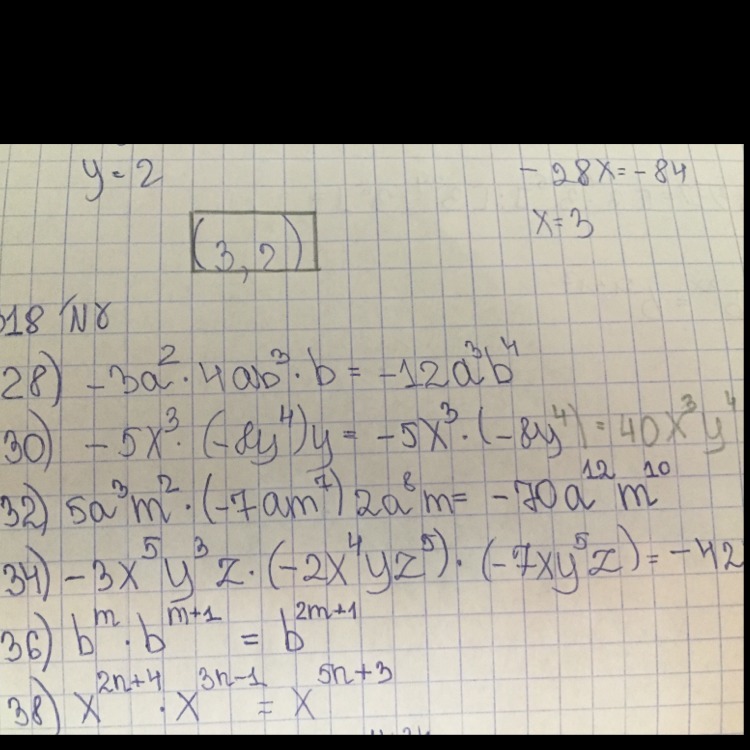 y=2
-28x=-84
x=3
(3,2)
18 NR
28) -3a²·4ab³·b = -12a³b⁴
30) -5x³·(-8y⁴)y = -5x³·(-8y⁴) = 40x³y⁴
32) 5a³m²·(-7am⁷)2a⁸m = -70a¹²m¹⁰
34) -3x⁵y³z·(-2x⁴yz⁵)·(-7xy⁵z) = -42
36) bᵐ·bᵐ⁺¹ = b²ᵐ⁺¹
38) x²ⁿ⁺⁴·x³ⁿ⁻¹ = x⁵ⁿ⁺³